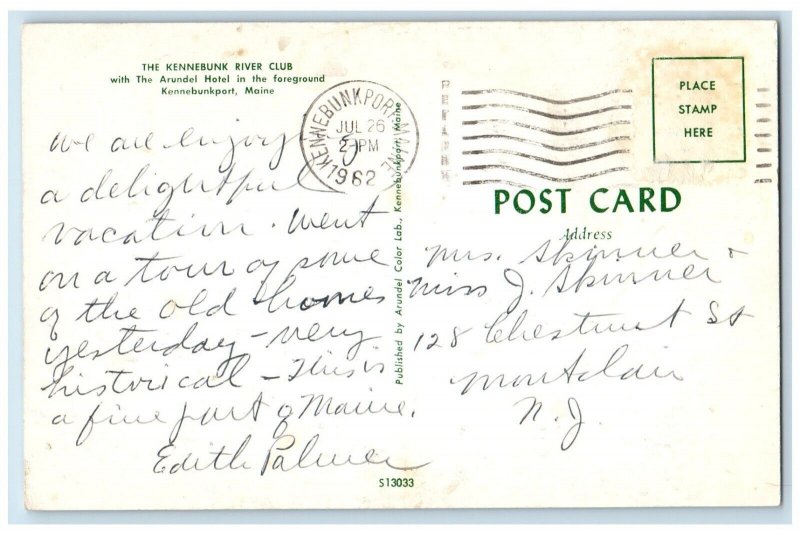 THE KENNEBUNK RIVER CLUB
with The Arundel Hotel in the foreground
Kennebunkport, Maine
KENNEBUNKPORT MAINE
JUL 26
2 PM
1962
PLACE
STAMP
HERE
POST CARD
Address
we are enjoying
a delightful
vacation. Went
on a tour of some
of the old homes
yesterday - very
historical - This is
a fine part of Maine.
Edith Palmer
Published by Arundel Color Lab., Kennebunkport, Maine
Mrs. Skinner +
Miss J. Skinner
128 Chestnut St
Montclair
N.J.
S13033